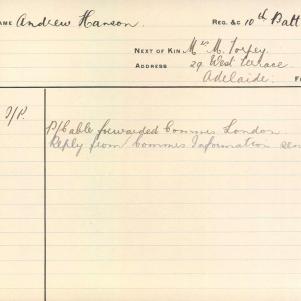 NAME Andrew Hanson. REG. &c 10th Batt
NEXT OF KIN Mrs M. Torpey.
ADDRESS 29 West Terrace
Adelaide.
P/Cable forwarded Commrs London.
Reply from Commrs Information